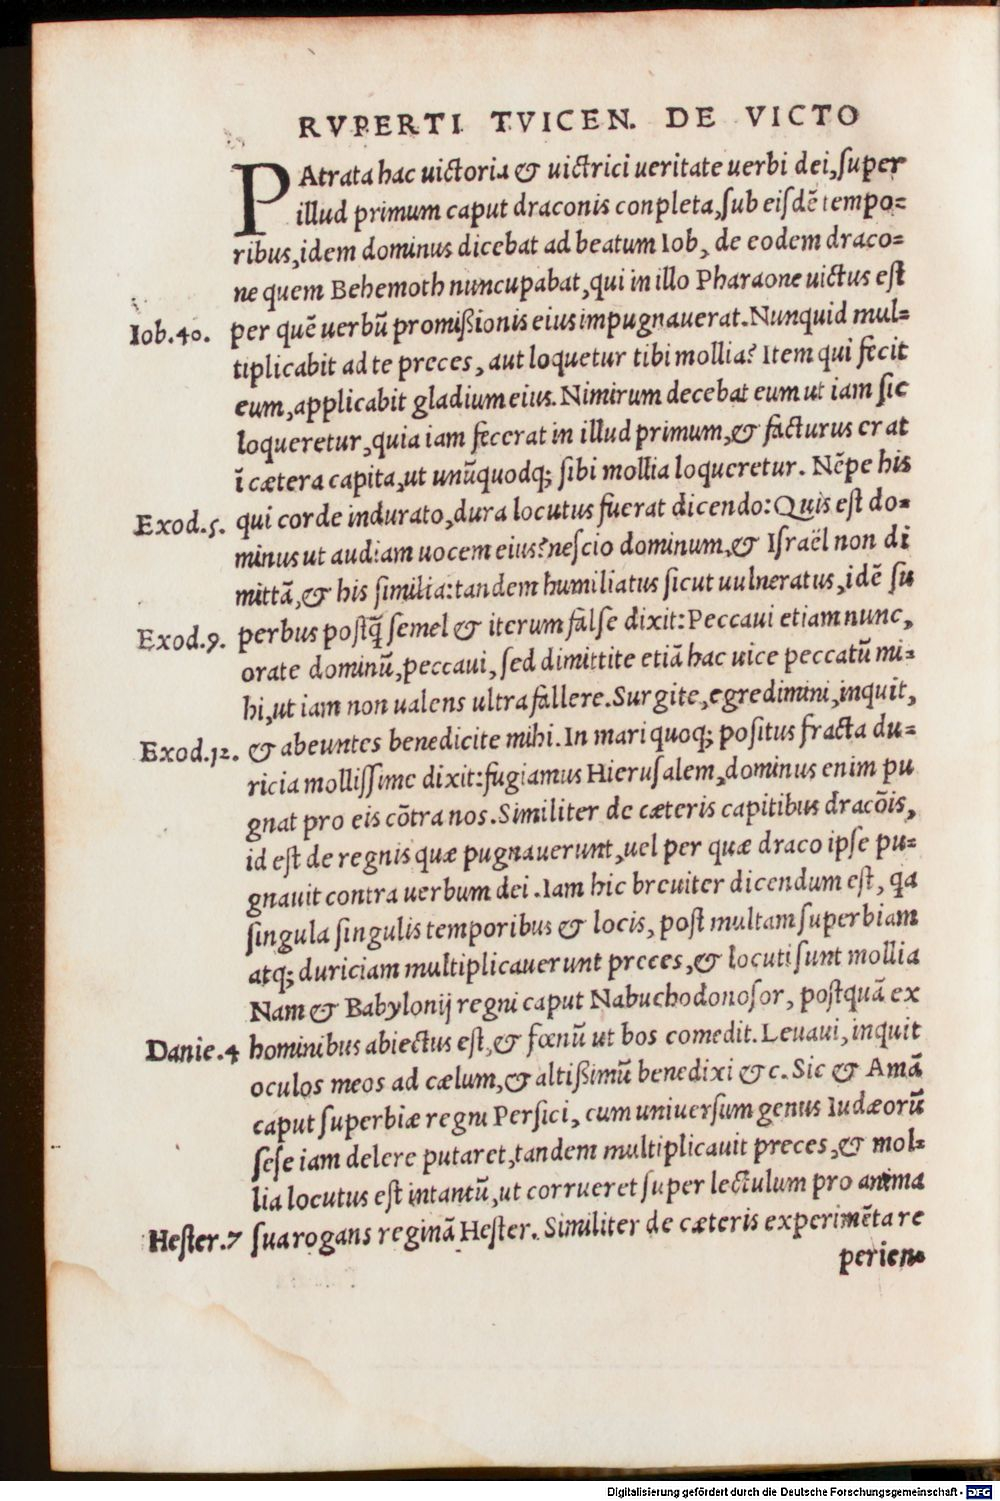 RVPERTI TVICEN. DE VICTO
PAtrata hac uictoria & uictrici ueritate uerbi dei, super
illud primum caput draconis conpleta, sub eisdē tempo=
ribus, idem dominus dicebat ad beatum Iob, de eodem draco=
ne quem Behemoth nuncupabat, qui in illo Pharaone uictus est
Iob.40. per quē uerbū promißionis eius impugnauerat. Nunquid mul=
tiplicabit ad te preces, aut loquetur tibi mollia? Item qui fecit
eum, applicabit gladium eius. Nimirum decebat eum ut iam sic
loqueretur, quia iam fecerat in illud primum, & facturus erat
ī cætera capita, ut unūquodq; sibi mollia loqueretur. Nēpe his
Exod.5. qui corde indurato, dura locutus fuerat dicendo: Quis est do=
minus ut audiam uocem eius? nescio dominum, & Israël non di
mittā, & his similia: tandem humiliatus sicut uulneratus, idē su
Exod.9. perbus postq̄ semel & iterum false dixit: Peccaui etiam nunc,
orate dominū, peccaui, sed dimittite etiā hac uice peccatū mi=
hi, ut iam non ualens ultra fallere. Surgite, egredimini, inquit,
Exod.12. & abeuntes benedicite mihi. In mari quoq; positus fracta du=
ricia mollissime dixit: fugiamus Hierusalem, dominus enim pu
gnat pro eis cōtra nos. Similiter de cæteris capitibus dracōis,
id est de regnis quæ pugnauerunt, uel per quæ draco ipse pu=
gnauit contra uerbum dei. Iam hic breuiter dicendum est, qa
singula singulis temporibus & locis, post multam superbiam
atq; duriciam multiplicauerunt preces, & locuti sunt mollia
Nam & Babylonij regni caput Nabuchodonosor, postquā ex
Danie.4 hominibus abiectus est, & fœnū ut bos comedit. Leuaui, inquit
oculos meos ad cælum, & altißimū benedixi & c. Sic & Amā
caput superbiæ regni Persici, cum uniuersum genus Iudæorū
sese iam delere putaret, tandem multiplicauit preces, & mol=
lia locutus est intantū, ut corrueret super lectulum pro anima
Hester.7 sua rogans reginā Hester. Similiter de cæteris experimēta re
perien=
Digitalisierung gefördert durch die Deutsche Forschungsgemeinschaft - DFG